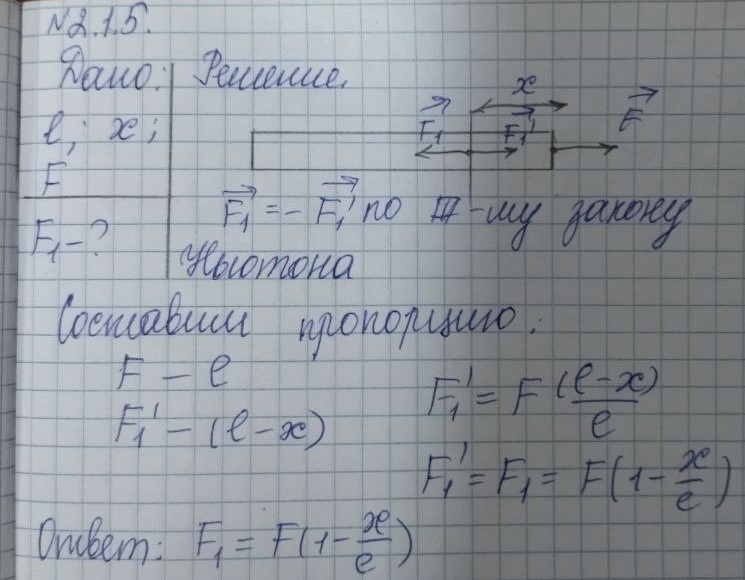 N2.1.5.
Дано: Решение.
l; x;
F
F₁-?
x
F₁ F₁' F
F₁ = - F₁' по III-му закону
Ньютона
Составим пропорцию:
F – l
F₁' – (l-x)
F₁' = F (l-x)/l
F₁' = F₁ = F(1 - x/l)
Ответ: F₁ = F(1 - x/l)